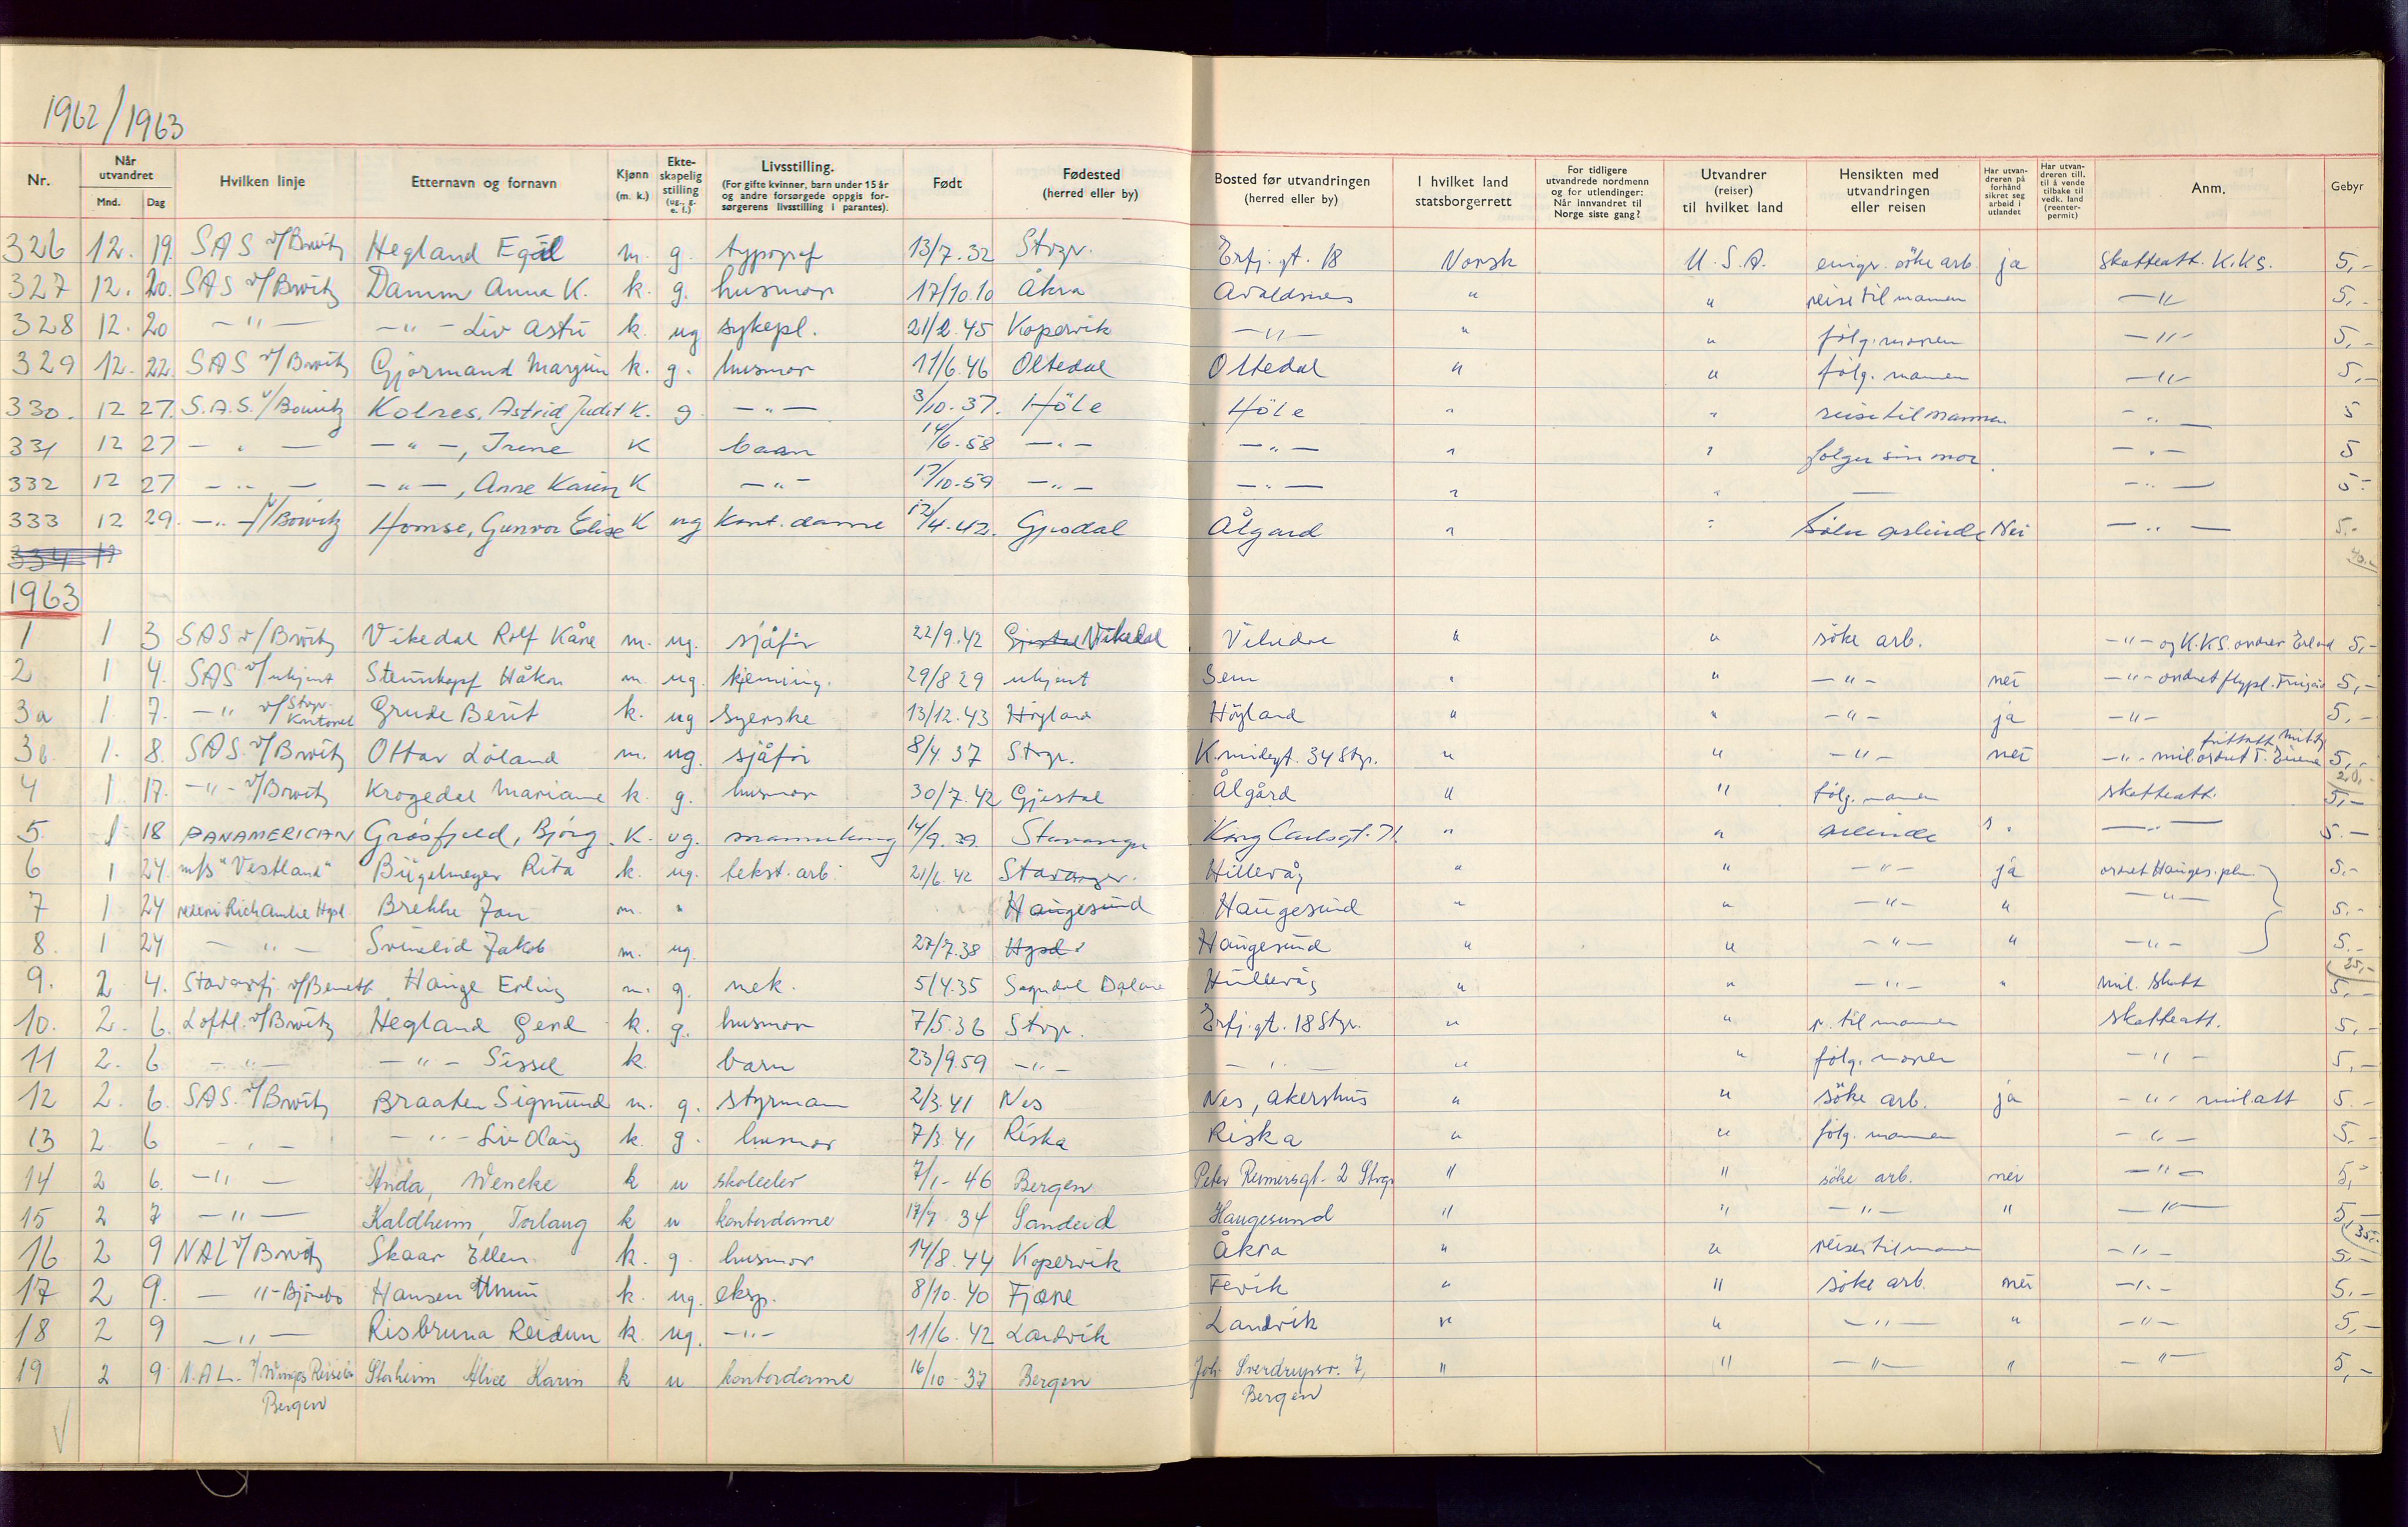 1962/1963
Nr. Når utvandret Mnd. Dag Hvilken linje Etternavn og fornavn Kjønn (m. k.) Ekteskapelig stilling (ug., g. e. f.) Livsstilling. (For gifte kvinner, barn under 15 år og andre forsørgede oppgis forsørgerens livsstilling i parantes). Født Fødested (herred eller by) Bosted før utvandringen (herred eller by) I hvilket land statsborgerrett For tidligere utvandrede nordmenn og for utlendinger: Når innvandret til Norge siste gang? Utvandrer (reiser) til hvilket land Hensikten med utvandringen eller reisen Har utvandreren på forhånd sikret seg arbeid i utlandet Har utvandreren till. til å vende tilbake til vedk. land (reenterpermit) Anm. Gebyr
326 12. 19. SAS v/Bowitz Hegland Egil m. g. typograf 13/7.32 Stvgr. Erfj.gt. 18 Norsk U.S.A. emigr. söke arb. ja Skatteatt. K.KS. 5,-
327 12. 20. SAS v/Bowitz Damm Anna K. k. g. husmor 17/10.10 Åkra Avaldsnes " " reise til mannen -"- 5,-
328 12. 20 -"- -"- Liv Astri k. ug sykepl. 21/2.45 Kopervik -"- " " fölg. moren -"- 5,-
329 12. 22. SAS v/Bowitz Gjörmand Margun k. g. husmor 11/6.46 Oltedal Oltedal " " fölg. mannen -"- 5,-
330. 12 27. S.A.S. v/Bowitz Kolnes, Astrid Judit K. g. -"- 3/10-37. Höle Höle " " reise til mannen -"- 5
331 12 27 -"- -"-, Irene K baan 14/6-58 -"- -"- " " følger sin mor. -"- 5
332 12 27 -"- -"-, Anne Karin K -"- 17/10-59 -"- -"- " " — -"- 5-
333 12 29. -"- v/Bowitz Homse, Gunvor Elise K ug Kont. dame 12/4-42. Gjesdal Ålgard " " Söke arbeide Nei -"- 5.-
334 12 40.-
1963
1 1 3 SAS v/Bowitz Vikedal Rolf Kåre m. ug. sjåför 22/9.42 Vikedal " " söke arb. -"- og K.KS. 5,-
2 1 4. SAS v/ukjent Steinkopf Håkon m. ug. 29/8 29 ukjent Sem " " -"- nei -"- ordnet flypl. 5,-
3a 1 7. -" v/Stvgr. Kontoret Grude Berit k. ug syerske 13/12.43 Höyland Höyland " " -"- ja -"- 5,-
3b. 1. 8. SAS. v/Bowitz Ottar Löland m. ug. sjåför 8/4.37 Stvgr. 34 Stgr. " " -"- nei -"- mil. ordnet 5,-
20,-
4 1 17. -"- v/Bowitz Krogedal Marianne k. g. husmor 30/7.42 Gjestal Ålgård " " fölg. mannen skatteatt. 5,-
5. 1 18 PANAMERICAN Gråsfjeld, Bjørg K. ug. 14/9.39. Stavanger Kong Carlsgt. 71. " " arbeide -"- 5.-
6 1 24. m/s "Vestland" Bügelmeyer Rita k. ug. tekst. arb. 21/6.42 Stavanger. Hillevåg " " -"- ja ordnet 5,-
7 1 24 rederi Rich Amlie Hgsd. Brekke Jan m. " Haugesund Haugesund " " -"- " -"- 5,-
8. 1 24 -"- Svinelid Jakob m. ug. 27/7.38 Hgsd. Haugesund " " -"- " -"- 5.-
25,-
9. 2 4. Stavarfj. v/Benett Hauge Erling m. g. mek. 5/4.35 Sogndal Dalane Hillevåg " " -"- " mil. skatt 5,-
10. 2. 6. Loftl. v/Bowitz Hegland Gerd k. g. husmor 7/5.36 Stvgr. Erfj.gt. 18 Stgr. " " r. til mannen Skatteatt. 5,-
11 2. 6 -"- -"- Sissel k. barn 23/9.59 -"- -"- " " fölg. moren -"- 5,-
12 2. 6. SAS. v/Bowitz Braaten Sigmund m. g. styrmann 2/3.41 Nes Nes, Akershus " " söke arb. ja -"- mil. att 5.-
13 2. 6 -"- -"- Liv Olaug k. g. husmor 7/3.41 Riska Riska " " fölg. mannen -"- 5,-
14 2 6. -"- Anda, Wencke k u skoleelev 7/1-46 Bergen Peter Reimersgt. 2 Stvgr " " söke arb. nei -"- 5,-
15 2 7 -"- Kaldheim, Torlaug k u kontordame 17/7 34 Sandeid Haugesund " " -"- " -"- 5,-
35,-
16 2 9 NAL v/Bowitz Skaar Ellen k. g. husmor 14/8.44 Kopervik Åkra " " reiser til mannen -"- 5,-
17 2 9. -"- Björnebo Hansen Unni k. ug. eksp. 8/10.40 Fjære Fevik " " söke arb. nei -"- 5,-
18 2 9 -"- Risbruna Reidun k. ug. -"- 11/6.42 Landvik Landvik " " -"- " -"- 5,-
19 2 9 N.A.L. v/Winges Reisebr. Bergen Storheim Alice Karin k u kontordame 16/10-37 Bergen Joh. Sverdrupsv. 7, Bergen " " -"- " -"- 5,-